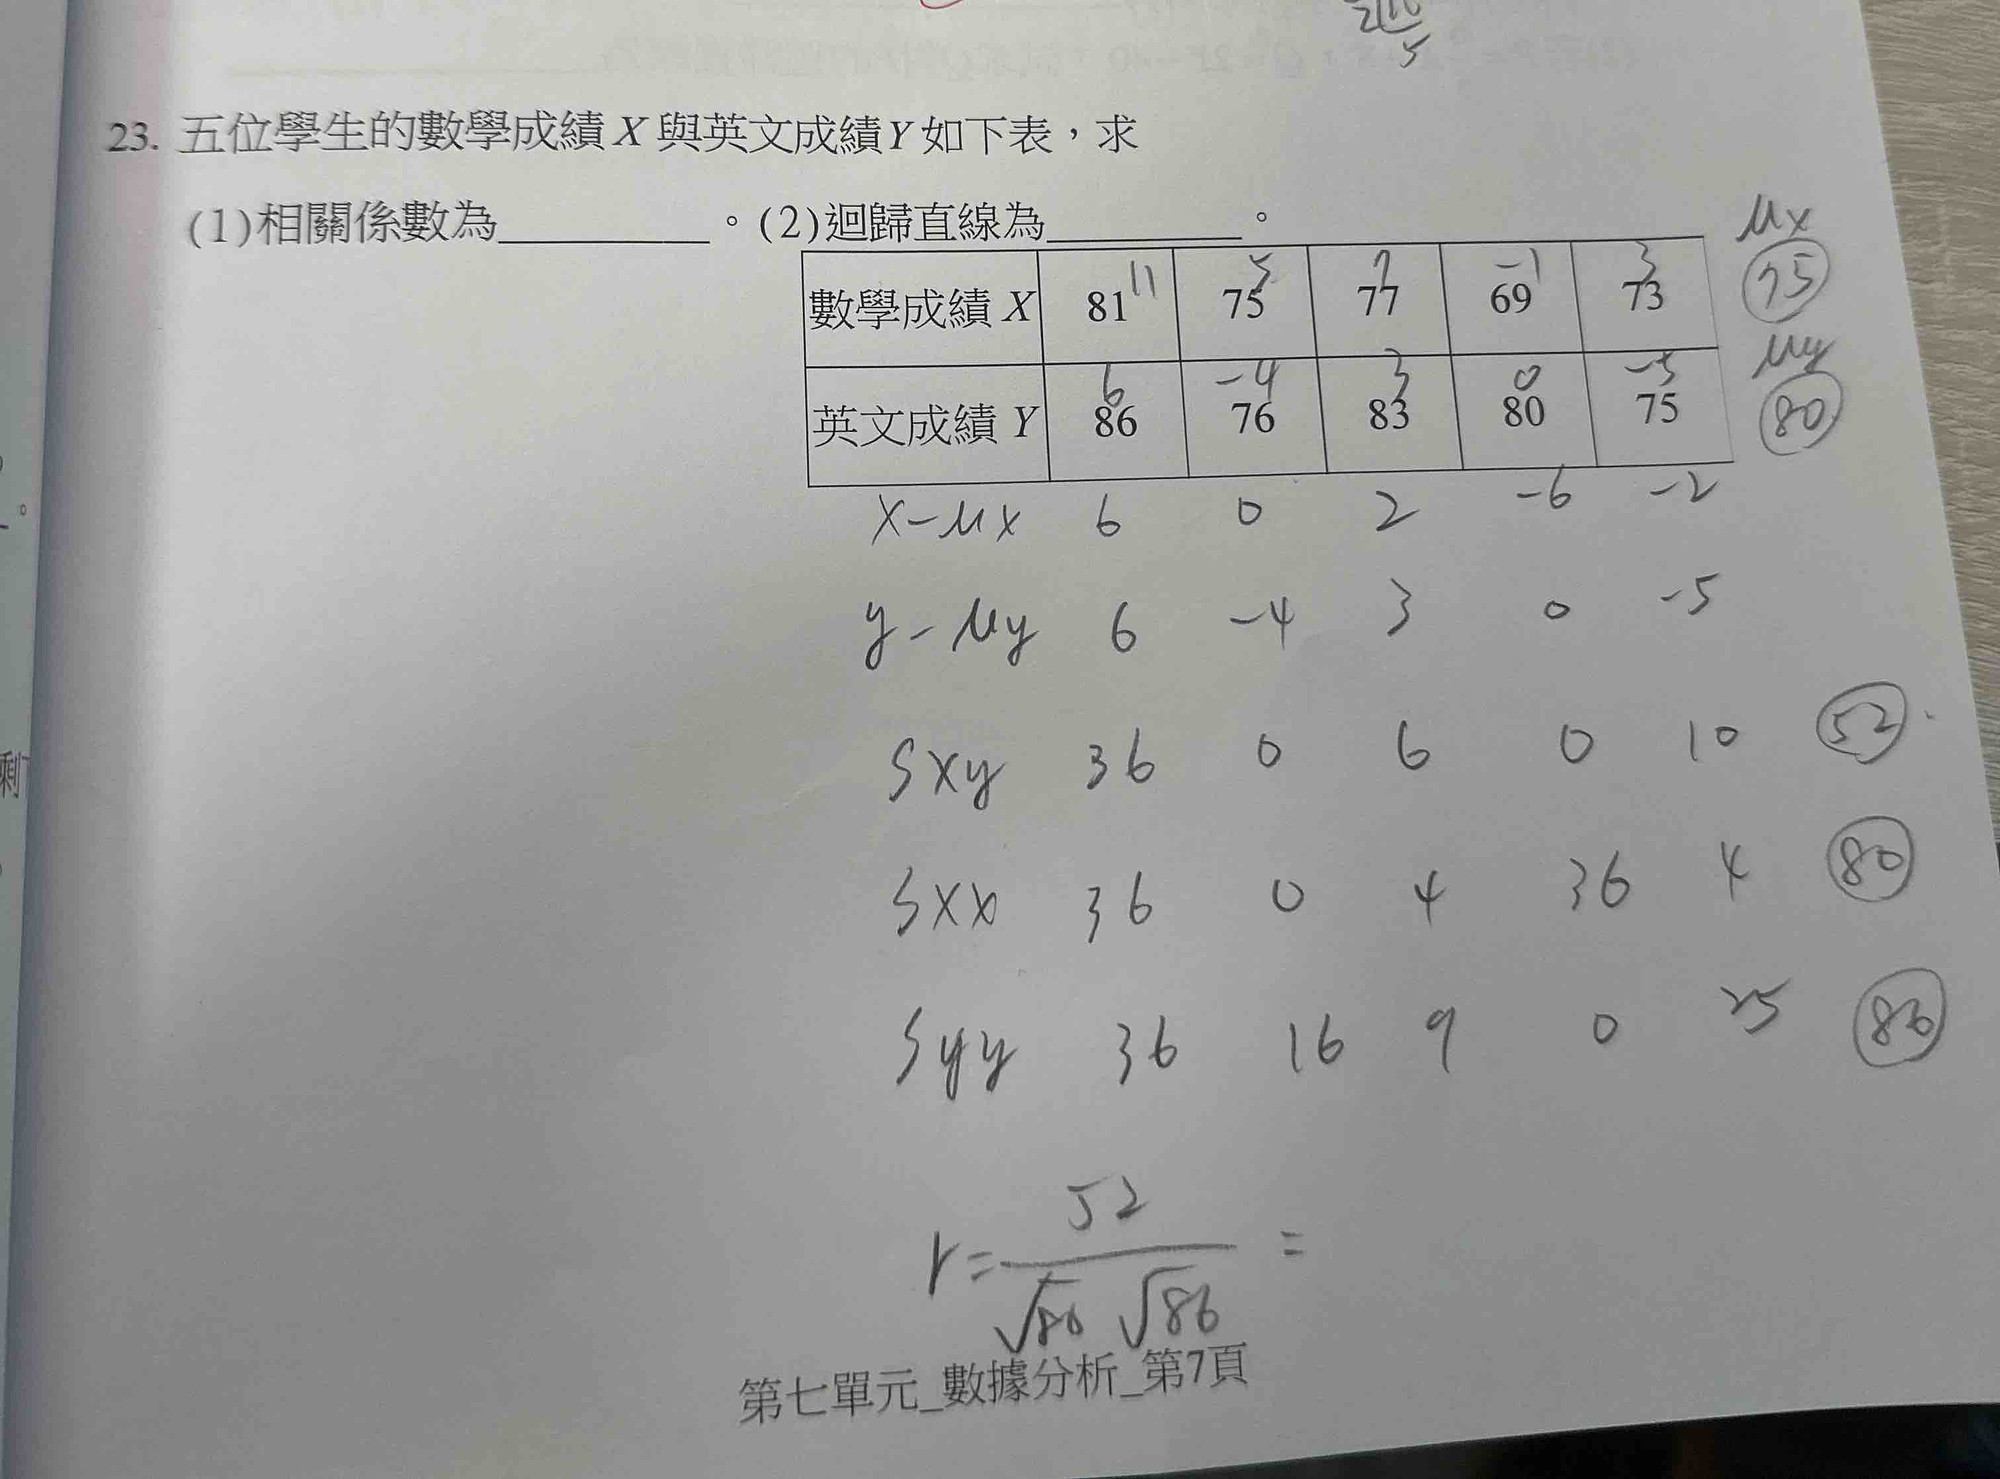 5
23. 五位學生的數學成績X與英文成績Y如下表，求
(1)相關係數為________。(2)迴歸直線為________。
μx
75
11 5 7 -1 3
數學成績 X 81 75 77 69 73
μy
80
6 -4 3 0 -5
英文成績 Y 86 76 83 80 75
x-μx 6 0 2 -6 -2
y-μy 6 -4 3 0 -5
Sxy 36 0 6 0 10 52
Sxx 36 0 4 36 4 80
Syy 36 16 9 0 25 86
52
r= =
√80 √86
第七單元_數據分析_第7頁
剩